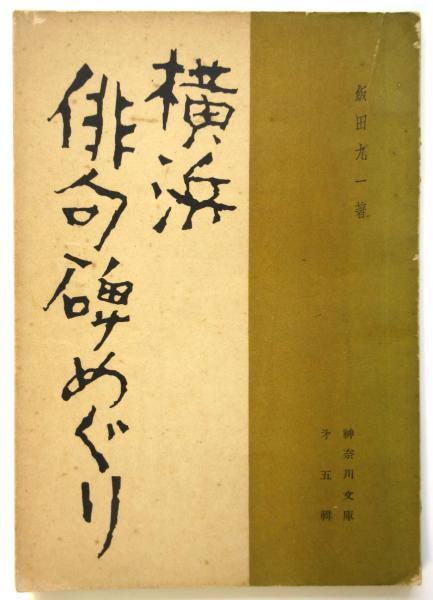 飯田九一著
横浜
俳句碑めぐり
神奈川文庫
才五輯